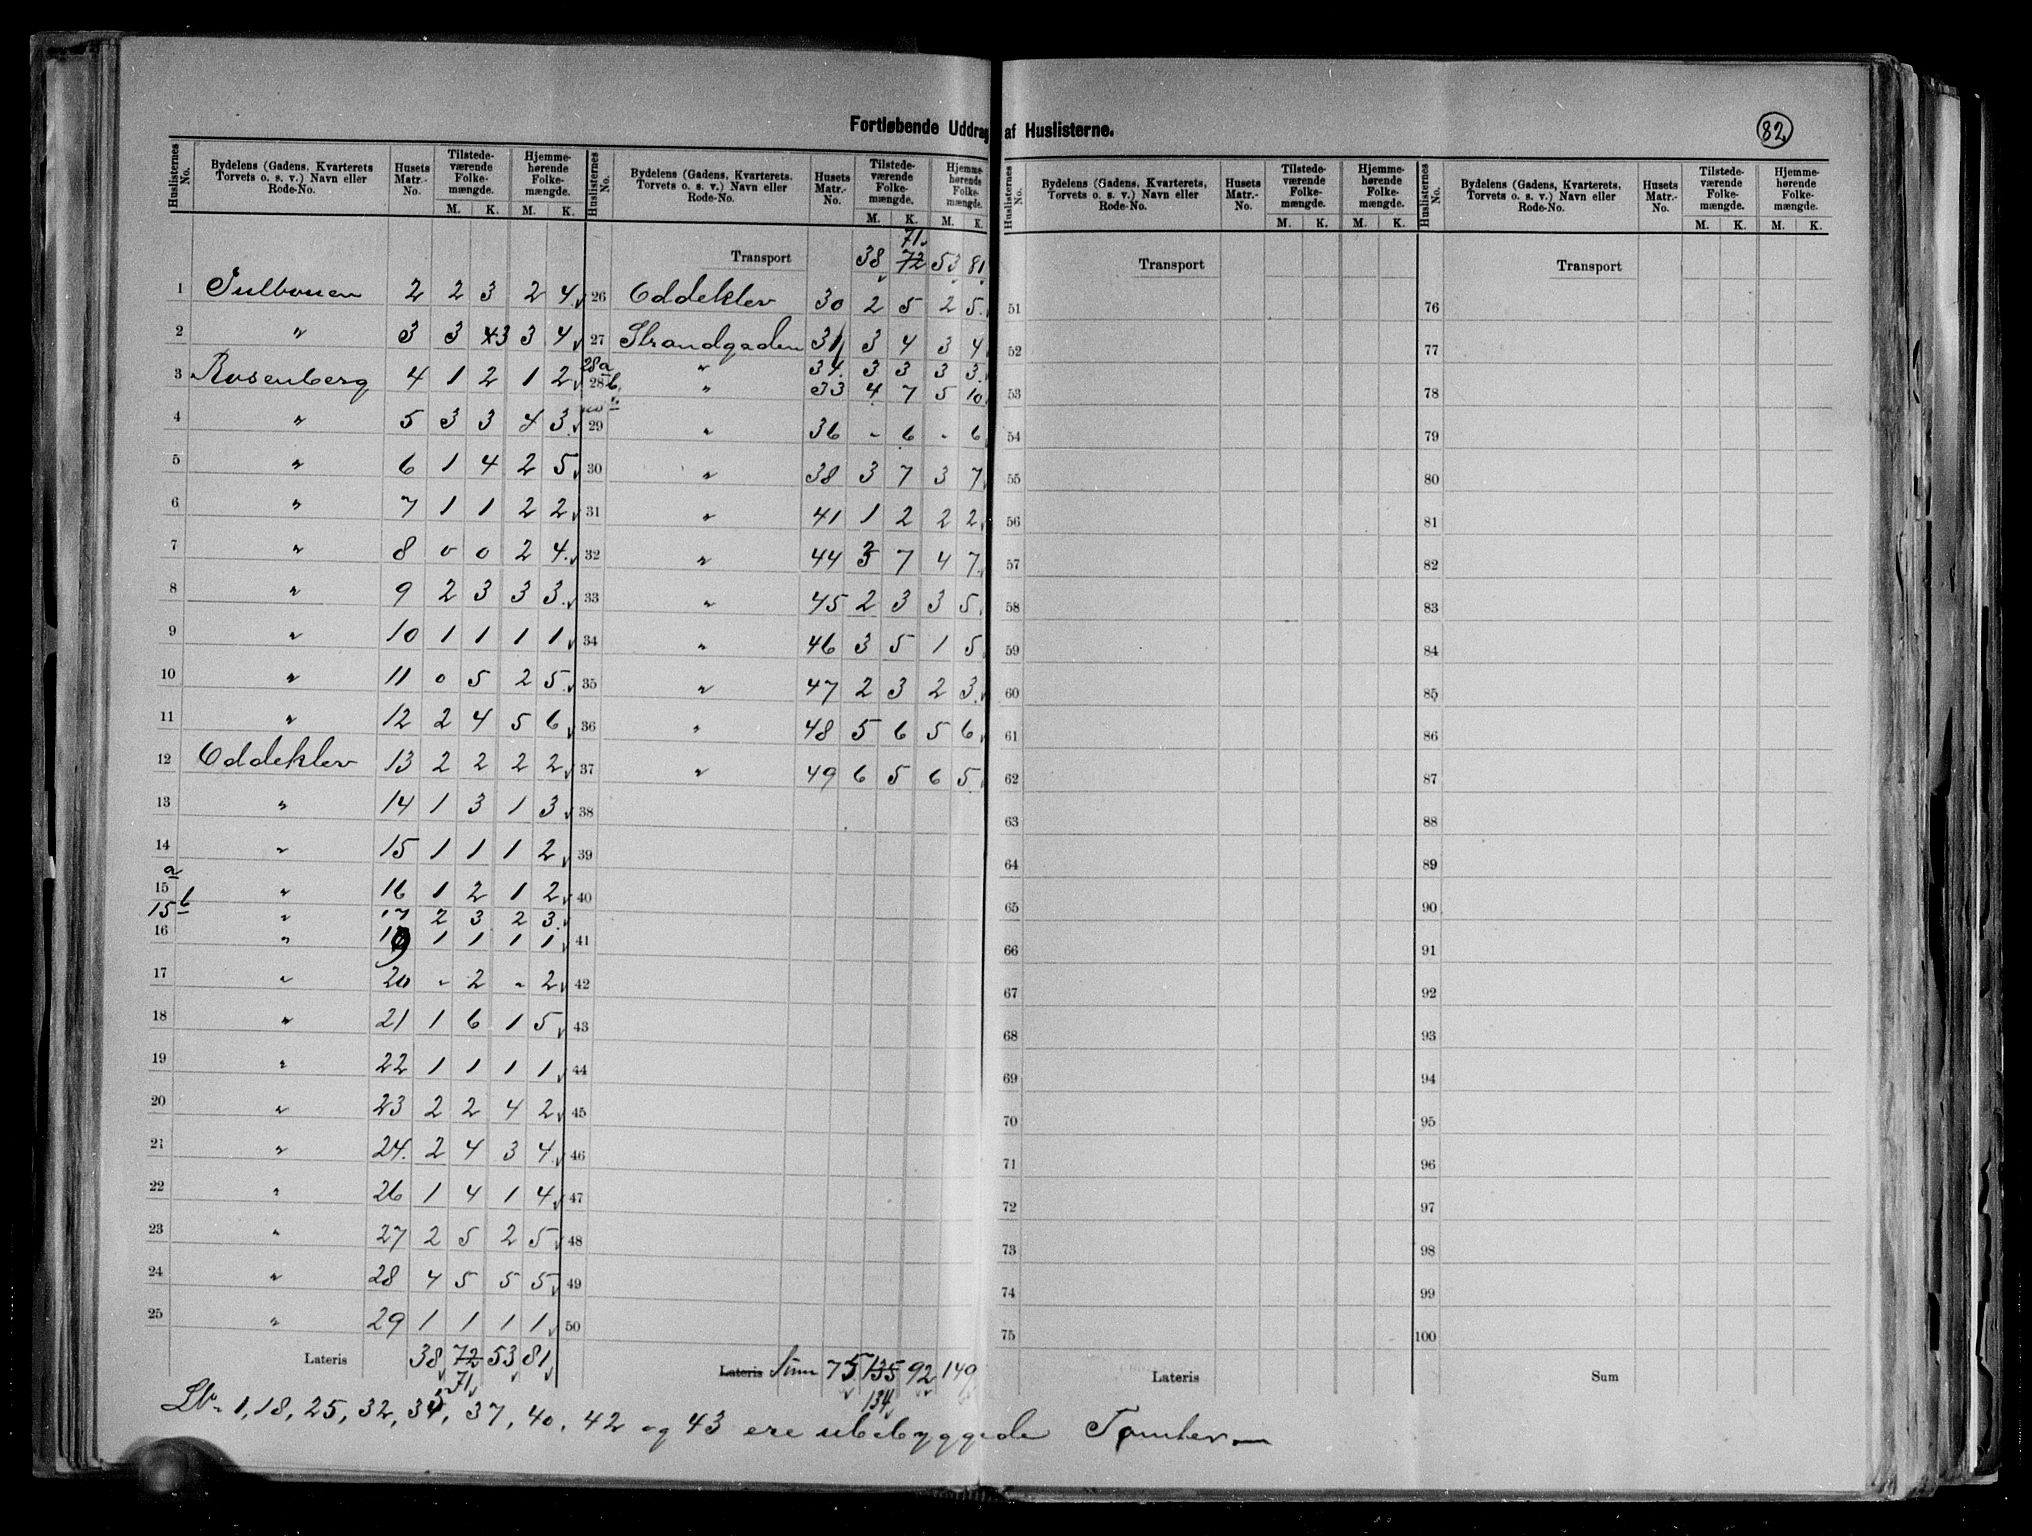 Fortløbende Uddrag af Huslisterne.
82
Huslisternes No. | Bydelens (Gadens, Kvarterets Torvets o. s. v.) Navn eller Rode-No. | Husets Matr.-No. | Tilstedeværende Folkemængde. M. K. | Hjemmehørende Folkemængde. M. K.
1 | 2 | 2 | 3 | 2 | 4
2 " | 3 | 3 | 4 3 | 3 | 4
3 Rosenberg | 4 | 1 | 2 | 1 | 2
4 " | 5 | 3 | 3 | 4 | 3
5 " | 6 | 1 | 4 | 2 | 5
6 " | 7 | 1 | 1 | 2 | 2
7 " | 8 | 0 | 0 | 2 | 4
8 " | 9 | 2 | 3 | 3 | 3
9 " | 10 | 1 | 1 | 1 | 1
10 " | 11 | 0 | 5 | 2 | 5
11 " | 12 | 2 | 4 | 5 | 6
12 Oddeklev | 13 | 2 | 2 | 2 | 2
13 " | 14 | 1 | 3 | 1 | 3
14 " | 15 | 1 | 1 | 1 | 2
15 a " | 16 | 1 | 2 | 1 | 2
15 b " | 17 | 2 | 3 | 2 | 3
16 " | 19 | 1 | 1 | 1 | 1
17 " | 20 | - | 2 | - | 2
18 " | 21 | 1 | 6 | 1 | 5
19 " | 22 | 1 | 1 | 1 | 1
20 " | 23 | 2 | 2 | 4 | 2
21 " | 24. | 2 | 4 | 3 | 4
22 " | 26 | 1 | 4 | 1 | 4
23 " | 27 | 2 | 5 | 2 | 5
24 " | 28 | 4 | 5 | 5 | 5
25 " | 29 | 1 | 1 | 1 | 1
Lateris | 38 | 72 71 | 53 | 81
Huslisternes No. | Bydelens (Gadens, Kvarterets. Torvets o. s. v.) Navn eller Rode-No. | Husets Matr.-No. | Tilstedeværende Folkemængde. M. K. | Hjemmehørende Folkemængde. M. K.
Transport | 38 | 71 72 | 53 | 81
26 Oddeklev | 30 | 2 | 5 | 2 | 5
27 Strandgaden | 31 | 3 | 4 | 3 | 4
28a " | 34. | 3 | 3 | 3 | 3
28 b " | 33 | 4 | 7 | 5 | 10
29 " | 36 | - | 6 | - | 6
30 " | 38 | 3 | 7 | 3 | 7
31 " | 41 | 1 | 2 | 2 | 2
32 " | 44 | 3 | 7 | 4 | 7
33 " | 45 | 2 | 3 | 3 | 5
34 " | 46 | 3 | 5 | 1 | 5
35 " | 47 | 2 | 3 | 2 | 3
36 " | 48 | 5 | 6 | 5 | 6
37 " | 49 | 6 | 5 | 6 | 5
38
39
40
41
42
43
44
45
46
47
48
49
50
Lateris Sum | 75 | 135 134 | 92 | 149
Huslisternes No. | Bydelens (Gadens, Kvarterets, Torvets o. s. v.) Navn eller Rode-No. | Husets Matr.-No. | Tilstedeværende Folkemængde. M. K. | Hjemmehørende Folkemængde. M. K.
Transport
51
52
53
54
55
56
57
58
59
60
61
62
63
64
65
66
67
68
69
70
71
72
73
74
75
Lateris
Huslisternes No. | Bydelens (Gadens, Kvarterets, Torvets o. s. v.) Navn eller Rode-No. | Husets Matr.-No. | Tilstedeværende Folkemængde. M. K. | Hjemmehørende Folkemængde. M. K.
Transport
76
77
78
79
80
81
82
83
84
85
86
87
88
89
90
91
92
93
94
95
96
97
98
99
100
Sum
1, 18, 25, 32, 35, 37, 40, 42 og 43 ere ubebyggede Tomter